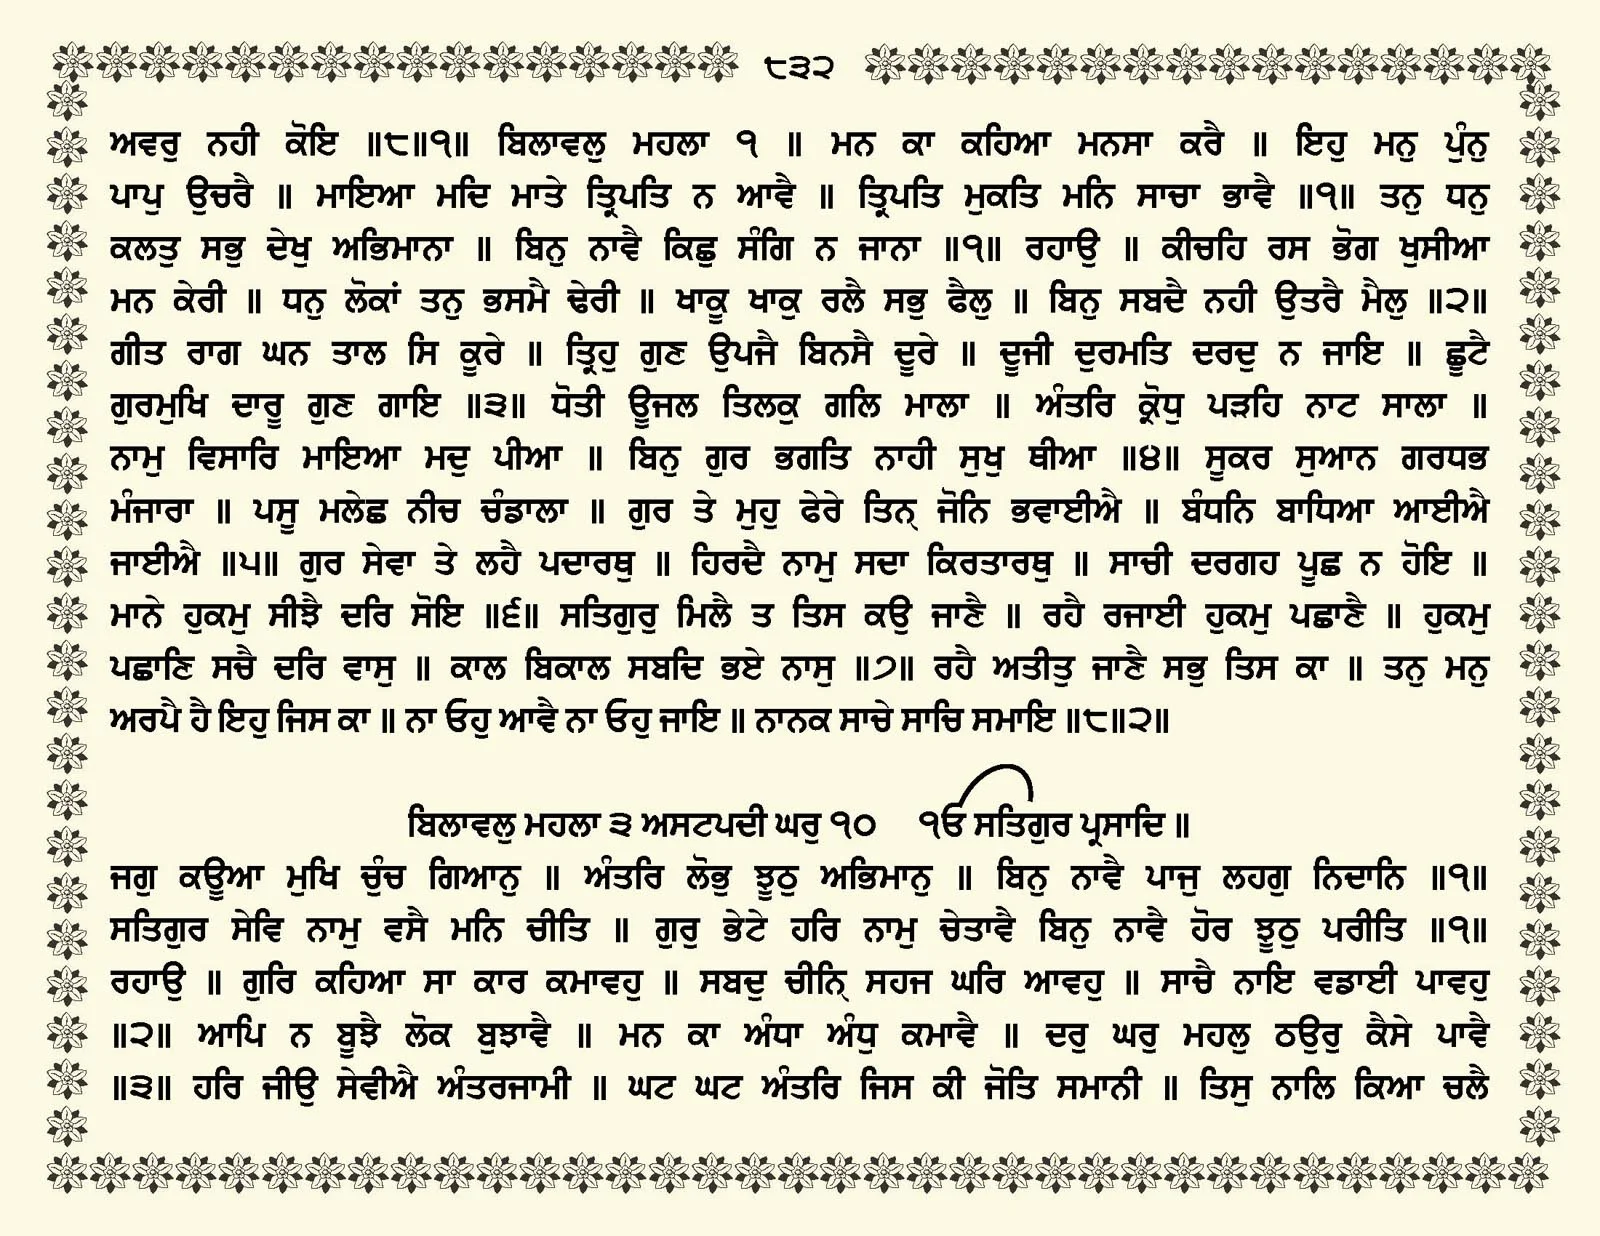 ੮੩੨
ਅਵਰੁ ਨਹੀ ਕੋਇ ॥੮॥੧॥ ਬਿਲਾਵਲੁ ਮਹਲਾ ੧ ॥ ਮਨ ਕਾ ਕਹਿਆ ਮਨਸਾ ਕਰੈ ॥ ਇਹੁ ਮਨੁ ਪੁੰਨੁ
ਪਾਪੁ ਉਚਰੈ ॥ ਮਾਇਆ ਮਦਿ ਮਾਤੇ ਤ੍ਰਿਪਤਿ ਨ ਆਵੈ ॥ ਤ੍ਰਿਪਤਿ ਮੁਕਤਿ ਮਨਿ ਸਾਚਾ ਭਾਵੈ ॥੧॥ ਤਨੁ ਧਨੁ
ਕਲਤੁ ਸਭੁ ਦੇਖੁ ਅਭਿਮਾਨਾ ॥ ਬਿਨੁ ਨਾਵੈ ਕਿਛੁ ਸੰਗਿ ਨ ਜਾਨਾ ॥੧॥ ਰਹਾਉ ॥ ਕੀਚਹਿ ਰਸ ਭੋਗ ਖੁਸੀਆ
ਮਨ ਕੇਰੀ ॥ ਧਨੁ ਲੋਕਾਂ ਤਨੁ ਭਸਮੈ ਢੇਰੀ ॥ ਖਾਕੂ ਖਾਕੁ ਰਲੈ ਸਭੁ ਫੈਲੁ ॥ ਬਿਨੁ ਸਬਦੈ ਨਹੀ ਉਤਰੈ ਮੈਲੁ ॥੨॥
ਗੀਤ ਰਾਗ ਘਨ ਤਾਲ ਸਿ ਕੂਰੇ ॥ ਤ੍ਰਿਹੁ ਗੁਣ ਉਪਜੈ ਬਿਨਸੈ ਦੂਰੇ ॥ ਦੂਜੀ ਦੁਰਮਤਿ ਦਰਦੁ ਨ ਜਾਇ ॥ ਛੂਟੈ
ਗੁਰਮੁਖਿ ਦਾਰੂ ਗੁਣ ਗਾਇ ॥੩॥ ਧੋਤੀ ਊਜਲ ਤਿਲਕੁ ਗਲਿ ਮਾਲਾ ॥ ਅੰਤਰਿ ਕ੍ਰੋਧੁ ਪੜਹਿ ਨਾਟ ਸਾਲਾ ॥
ਨਾਮੁ ਵਿਸਾਰਿ ਮਾਇਆ ਮਦੁ ਪੀਆ ॥ ਬਿਨੁ ਗੁਰ ਭਗਤਿ ਨਾਹੀ ਸੁਖੁ ਥੀਆ ॥੪॥ ਸੂਕਰ ਸੁਆਨ ਗਰਧਭ
ਮੰਜਾਰਾ ॥ ਪਸੂ ਮਲੇਛ ਨੀਚ ਚੰਡਾਲਾ ॥ ਗੁਰ ਤੇ ਮੁਹੁ ਫੇਰੇ ਤਿਨ੍ ਜੋਨਿ ਭਵਾਈਐ ॥ ਬੰਧਨਿ ਬਾਧਿਆ ਆਈਐ
ਜਾਈਐ ॥੫॥ ਗੁਰ ਸੇਵਾ ਤੇ ਲਹੈ ਪਦਾਰਥੁ ॥ ਹਿਰਦੈ ਨਾਮੁ ਸਦਾ ਕਿਰਤਾਰਥੁ ॥ ਸਾਚੀ ਦਰਗਹ ਪੂਛ ਨ ਹੋਇ ॥
ਮਾਨੇ ਹੁਕਮੁ ਸੀਝੈ ਦਰਿ ਸੋਇ ॥੬॥ ਸਤਿਗੁਰੁ ਮਿਲੈ ਤ ਤਿਸ ਕਉ ਜਾਣੈ ॥ ਰਹੈ ਰਜਾਈ ਹੁਕਮੁ ਪਛਾਣੈ ॥ ਹੁਕਮੁ
ਪਛਾਣਿ ਸਚੈ ਦਰਿ ਵਾਸੁ ॥ ਕਾਲ ਬਿਕਾਲ ਸਬਦਿ ਭਏ ਨਾਸੁ ॥੭॥ ਰਹੈ ਅਤੀਤੁ ਜਾਣੈ ਸਭੁ ਤਿਸ ਕਾ ॥ ਤਨੁ ਮਨੁ
ਅਰਪੈ ਹੈ ਇਹੁ ਜਿਸ ਕਾ ॥ ਨਾ ਓਹੁ ਆਵੈ ਨਾ ਓਹੁ ਜਾਇ ॥ ਨਾਨਕ ਸਾਚੇ ਸਾਚਿ ਸਮਾਇ ॥੮॥੨॥
ਬਿਲਾਵਲੁ ਮਹਲਾ ੩ ਅਸਟਪਦੀ ਘਰੁ ੧੦ ੴ ਸਤਿਗੁਰ ਪ੍ਰਸਾਦਿ ॥
ਜਗੁ ਕਊਆ ਮੁਖਿ ਚੁੰਚ ਗਿਆਨੁ ॥ ਅੰਤਰਿ ਲੋਭੁ ਝੂਠੁ ਅਭਿਮਾਨੁ ॥ ਬਿਨੁ ਨਾਵੈ ਪਾਜੁ ਲਹਗੁ ਨਿਦਾਨਿ ॥੧॥
ਸਤਿਗੁਰ ਸੇਵਿ ਨਾਮੁ ਵਸੈ ਮਨਿ ਚੀਤਿ ॥ ਗੁਰੁ ਭੇਟੇ ਹਰਿ ਨਾਮੁ ਚੇਤਾਵੈ ਬਿਨੁ ਨਾਵੈ ਹੋਰ ਝੂਠੁ ਪਰੀਤਿ ॥੧॥
ਰਹਾਉ ॥ ਗੁਰਿ ਕਹਿਆ ਸਾ ਕਾਰ ਕਮਾਵਹੁ ॥ ਸਬਦੁ ਚੀਨਿ੍ ਸਹਜ ਘਰਿ ਆਵਹੁ ॥ ਸਾਚੈ ਨਾਇ ਵਡਾਈ ਪਾਵਹੁ
॥੨॥ ਆਪਿ ਨ ਬੂਝੈ ਲੋਕ ਬੁਝਾਵੈ ॥ ਮਨ ਕਾ ਅੰਧਾ ਅੰਧੁ ਕਮਾਵੈ ॥ ਦਰੁ ਘਰੁ ਮਹਲੁ ਠਉਰੁ ਕੈਸੇ ਪਾਵੈ
॥੩॥ ਹਰਿ ਜੀਉ ਸੇਵੀਐ ਅੰਤਰਜਾਮੀ ॥ ਘਟ ਘਟ ਅੰਤਰਿ ਜਿਸ ਕੀ ਜੋਤਿ ਸਮਾਨੀ ॥ ਤਿਸੁ ਨਾਲਿ ਕਿਆ ਚਲੈ